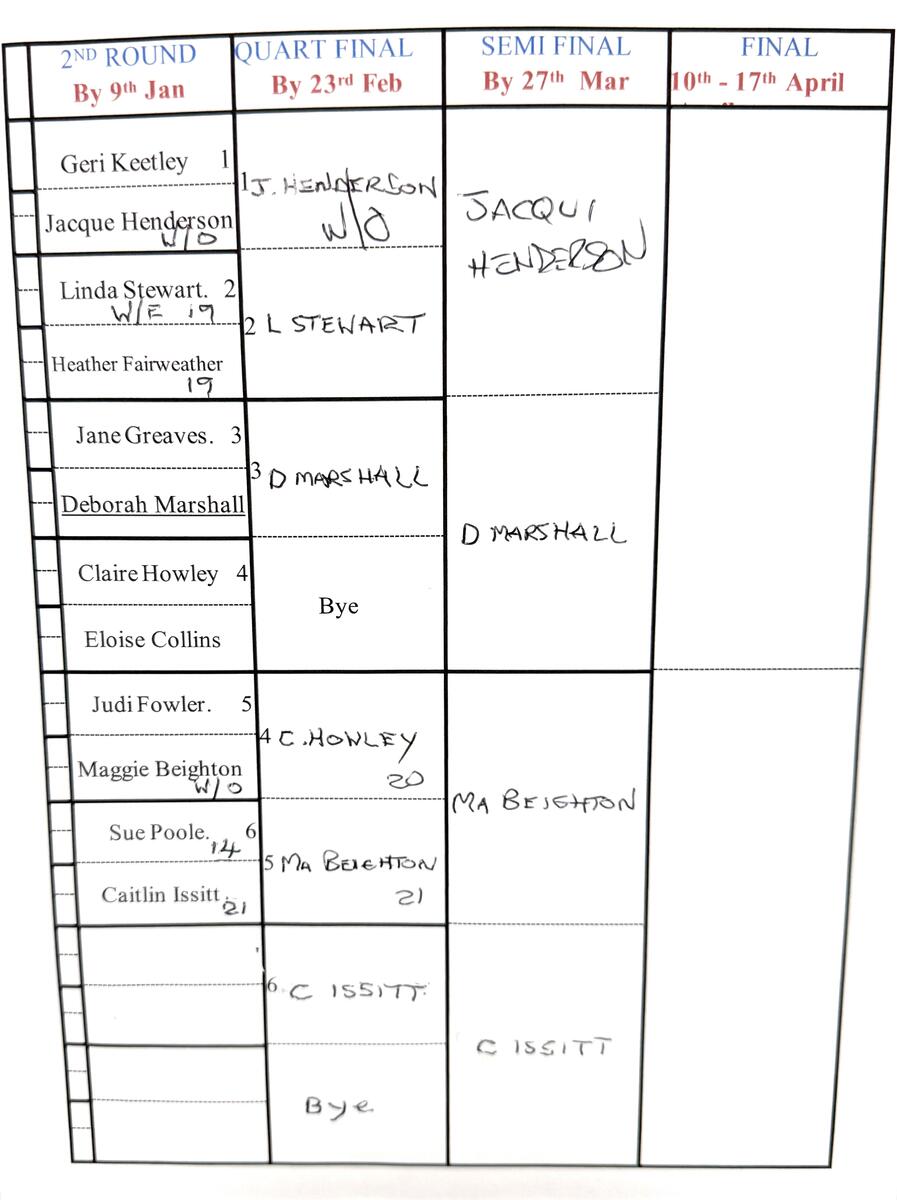 2ND ROUND
By 9th Jan
QUART FINAL
By 23rd Feb
SEMI FINAL
By 27th Mar
FINAL
10th - 17th April
Geri Keetley 1
Jacque Henderson
W/O
Linda Stewart. 2
W/E 19
Heather Fairweather
19
Jane Greaves. 3
Deborah Marshall
Claire Howley 4
Eloise Collins
Judi Fowler. 5
Maggie Beighton
W/O
Sue Poole. 6
14
Caitlin Issitt.
21
1 J. HENDERSON
W/O
2 L STEWART
3 D MARSHALL
Bye
4 C. HOWLEY
20
5 MA BEIGHTON
21
6 C ISSITT.
Bye
JACQUI
HENDERSON
D MARSHALL
MA BEIGHTON
C ISSITT